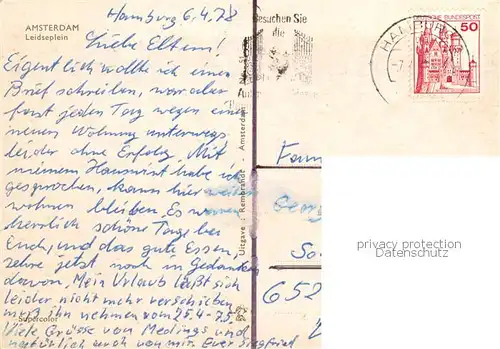 AMSTERDAM
Leidseplein
Hamburg 6.4.78
Liebe Eltern!
Eigentlich wollte ich einen
Brief schreiben, war aber
fast jeden Tag wegen einer
neuen Wohnung unterwegs
leider ohne Erfolg. Mit
meinem Hauswirt habe ich
gesprochen, kann hier
wohnen bleiben. Es waren
herrlich schöne Tage bei
Euch, und das gute Essen,
zehre jetzt noch in Gedanken
davon. Mein Urlaub läßt sich
leider nicht mehr verschieben
muß ihn nehmen vom 25.4-
Viele Grüsse von Medings und
natürlich auch von mir Euer Siegfried
Supercolor
Uitgave Rembrandt Amsterdam
Besuchen Sie
die
HAMBURG
DEUTSCHE BUNDESPOST
50
Fam
Georg
652
privacy protection
Datenschutz